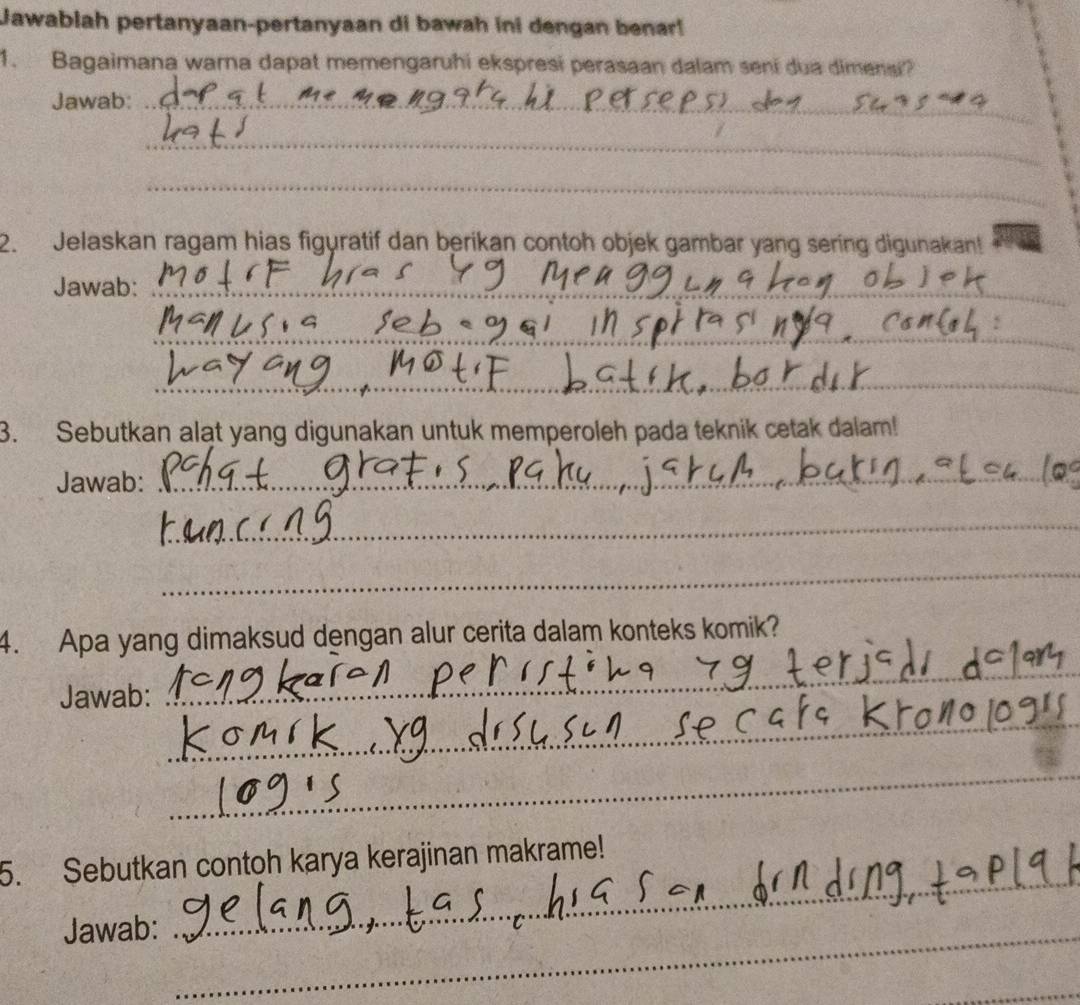 Jawablah pertanyaan-pertanyaan di bawah ini dengan benar!
1. Bagaimana warna dapat memengaruhi ekspresi perasaan dalam seni dua dimensi?
Jawab: dapat memengaruhi persepsi dan suasana
hati
2. Jelaskan ragam hias figuratif dan berikan contoh objek gambar yang sering digunakan!
Jawab: motif hias yg menggunakan objek
manusia sebagai inspirasinya. contoh:
wayang, motif batik, bordir
3. Sebutkan alat yang digunakan untuk memperoleh pada teknik cetak dalam!
Jawab: pahat gratis, paku, jarum, burin, atau log
runcing
4. Apa yang dimaksud dengan alur cerita dalam konteks komik?
Jawab: rangkaian peristiwa yg terjadi dalam
komik, yg disusun secara kronologis
logis
5. Sebutkan contoh karya kerajinan makrame!
Jawab: gelang, tas, hiasan dinding, taplak